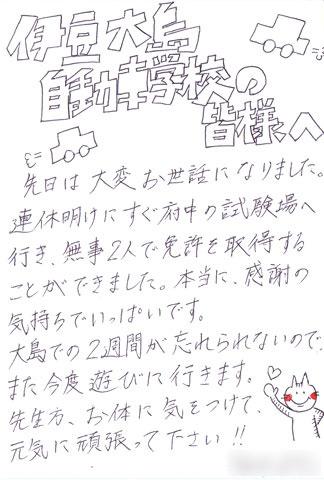 伊豆大島
自動車学校の
皆様へ
先日は大変お世話になりました。
連休明けにすぐ府中の試験場へ
行き、無事2人で免許を取得する
ことができました。本当に、感謝の
気持ちでいっぱいです。
大島での2週間が忘れられないので、
また今度遊びに行きます。
先生方、お体に気をつけて、
元気に頑張って下さい!!